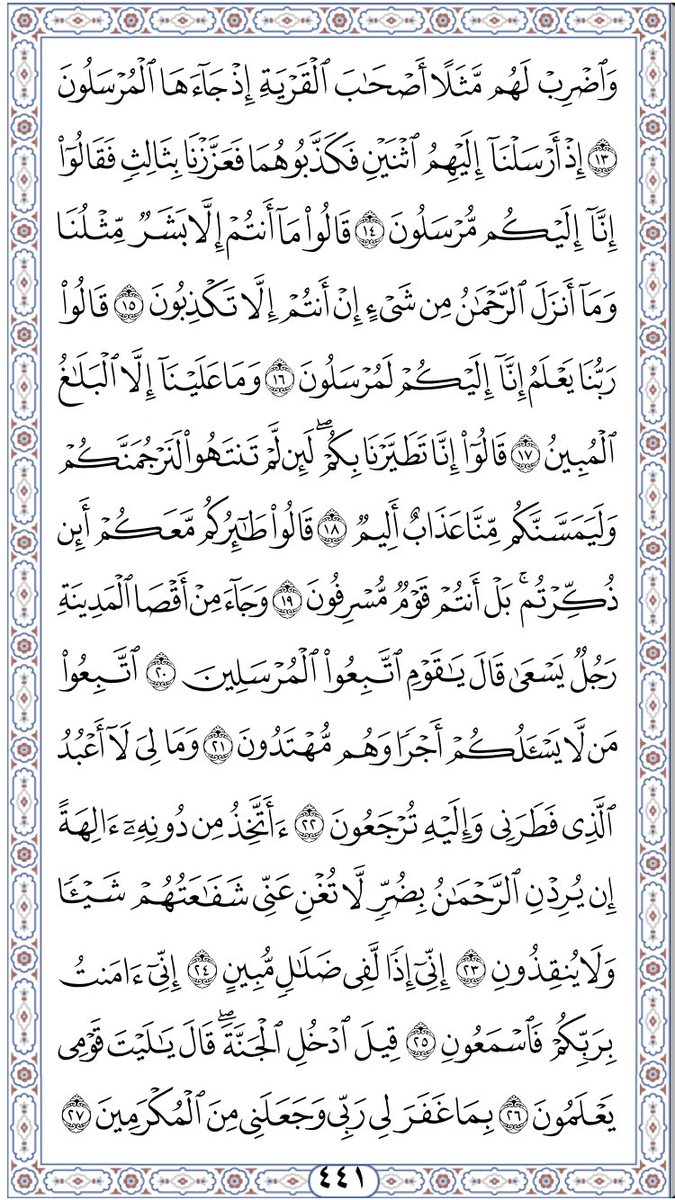 وَٱضْرِبْ لَهُم مَّثَلًا أَصْحَٰبَ ٱلْقَرْيَةِ إِذْ جَآءَهَا ٱلْمُرْسَلُونَ
١٣ إِذْ أَرْسَلْنَآ إِلَيْهِمُ ٱثْنَيْنِ فَكَذَّبُوهُمَا فَعَزَّزْنَا بِثَالِثٍ فَقَالُوٓا۟
إِنَّآ إِلَيْكُم مُّرْسَلُونَ ١٤ قَالُوا۟ مَآ أَنتُمْ إِلَّا بَشَرٌ مِّثْلُنَا
وَمَآ أَنزَلَ ٱلرَّحْمَٰنُ مِن شَىْءٍ إِنْ أَنتُمْ إِلَّا تَكْذِبُونَ ١٥ قَالُوا۟
رَبُّنَا يَعْلَمُ إِنَّآ إِلَيْكُمْ لَمُرْسَلُونَ ١٦ وَمَا عَلَيْنَآ إِلَّا ٱلْبَلَٰغُ
ٱلْمُبِينُ ١٧ قَالُوٓا۟ إِنَّا تَطَيَّرْنَا بِكُمْ ۖ لَئِن لَّمْ تَنتَهُوا۟ لَنَرْجُمَنَّكُمْ
وَلَيَمَسَّنَّكُم مِّنَّا عَذَابٌ أَلِيمٌ ١٨ قَالُوا۟ طَٰٓئِرُكُم مَّعَكُمْ أَئِن
ذُكِّرْتُم ۚ بَلْ أَنتُمْ قَوْمٌ مُّسْرِفُونَ ١٩ وَجَآءَ مِنْ أَقْصَا ٱلْمَدِينَةِ
رَجُلٌ يَسْعَىٰ قَالَ يَٰقَوْمِ ٱتَّبِعُوا۟ ٱلْمُرْسَلِينَ ٢٠ ٱتَّبِعُوا۟
مَن لَّا يَسْـَٔلُكُمْ أَجْرًا وَهُم مُّهْتَدُونَ ٢١ وَمَا لِىَ لَآ أَعْبُدُ
ٱلَّذِى فَطَرَنِى وَإِلَيْهِ تُرْجَعُونَ ٢٢ ءَأَتَّخِذُ مِن دُونِهِۦٓ ءَالِهَةً
إِن يُرِدْنِ ٱلرَّحْمَٰنُ بِضُرٍّ لَّا تُغْنِ عَنِّى شَفَٰعَتُهُمْ شَيْـًٔا
وَلَا يُنقِذُونِ ٢٣ إِنِّىٓ إِذًا لَّفِى ضَلَٰلٍ مُّبِينٍ ٢٤ إِنِّىٓ ءَامَنتُ
بِرَبِّكُمْ فَٱسْمَعُونِ ٢٥ قِيلَ ٱدْخُلِ ٱلْجَنَّةَ ۖ قَالَ يَٰلَيْتَ قَوْمِى
يَعْلَمُونَ ٢٦ بِمَا غَفَرَ لِى رَبِّى وَجَعَلَنِى مِنَ ٱلْمُكْرَمِينَ ٢٧
٤٤١